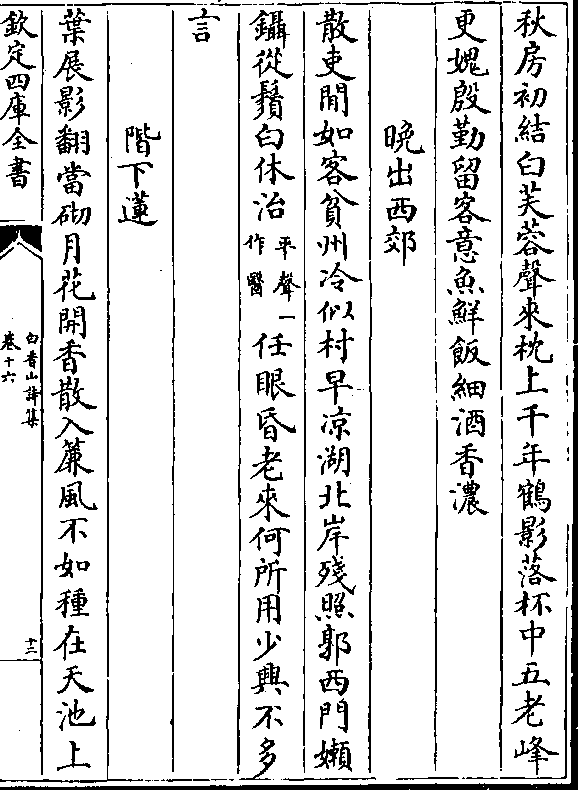 秋房初結白芙蓉聲來枕上千年鶴影落杯中五老峰
更媿殷勤留客意魚鮮飯細酒香濃
晚出西郊
散吏閒如客貧州冷似村早凉湖北岸殘照郭西門嬾
鑷從鬚白休治平聲一作醫任眼昏老來何所用少興不多
言
階下蓮
葉展影翻當砌月花開香散入簾風不如種在天池上
欽定四庫全書
白香山詩集
卷十六
十二